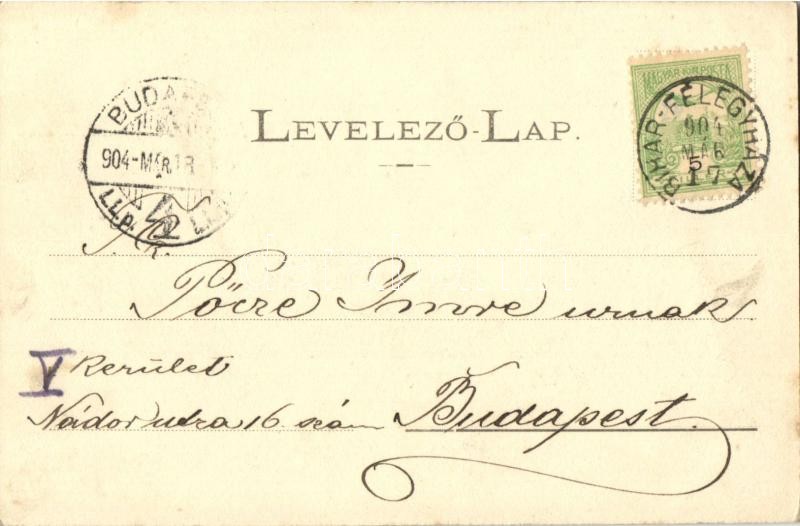 LEVELEZŐ-LAP.
MAGYAR KIR. POSTA
BIHAR-FÉLEGYHÁZA
904
MÁR
17
5
BUDAPES
904-MÁR.18
T. Cz.
Pőcze Imre urnak
V kerület
Nádor utza 16. szám Budapest.